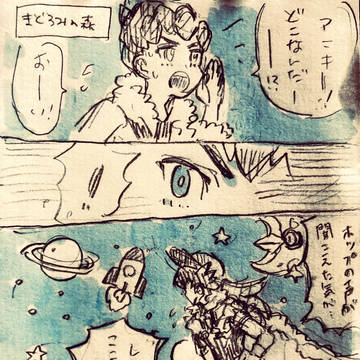 アニキー!!
どこなんだー!?
まどろみの森
おーい
!!
ホップの声が
聞こえた気が…